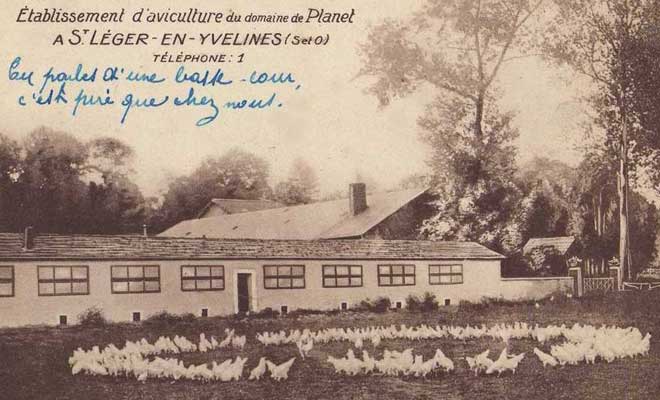 Établissement d'aviculture du domaine de Planet
A ST LÉGER-EN-YVELINES (S et O)
TÉLÉPHONE : 1
Tu parles d'une basse-cour,
c'est pire que chez nous.